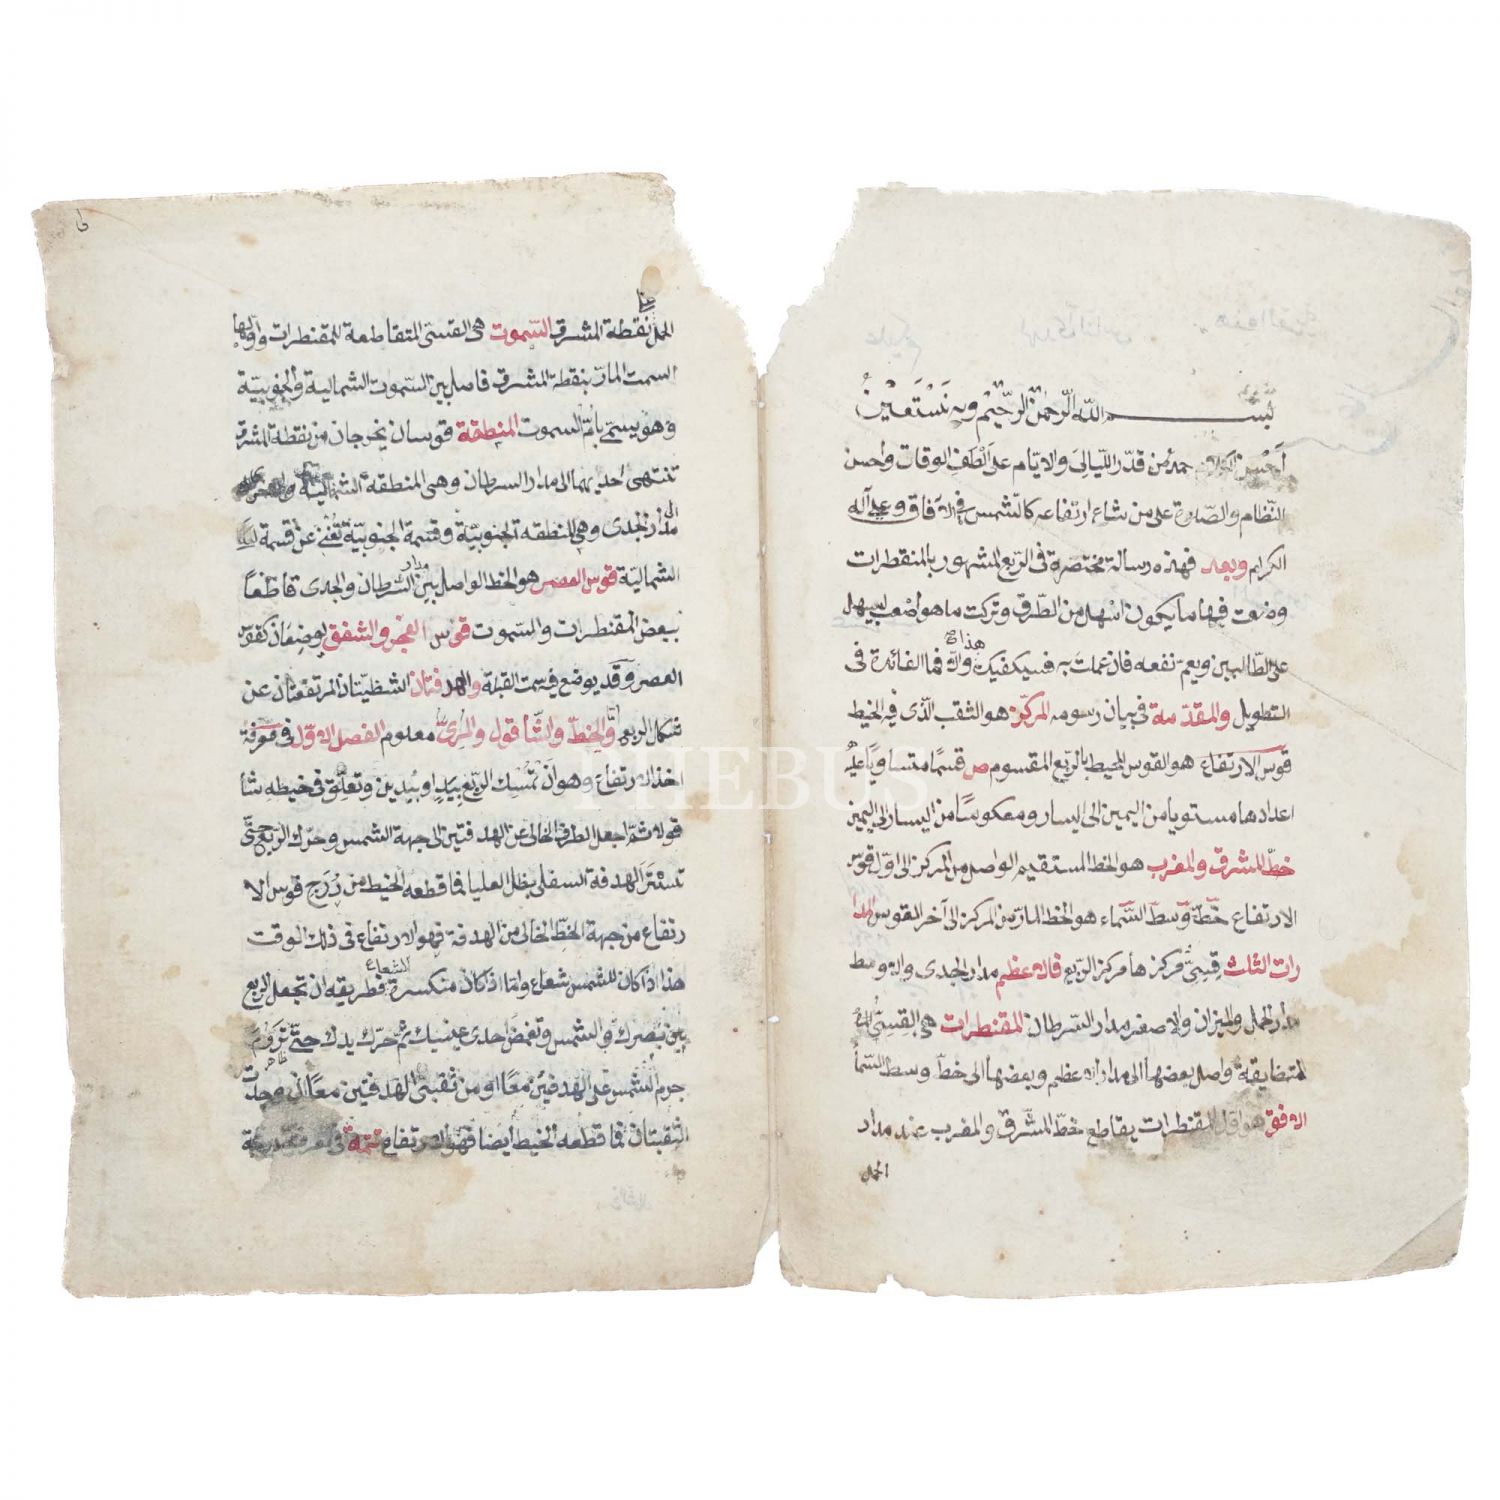 بسم الله الرحمن الرحيم وبه نستعين
أحسن الكلام حمد من قدّر الليالي والايام على الطف الوقات واحسن
النظام والصلوة على من شاع ارتفاعه كالشمس في الآفاق وعلى آله
الكرام وبعد فهذه رسالة مختصرة في الربع المشهور بالمنقطرات
وضعت فيها ما يكون اسهل من الطرق وتركت ما هو اصعب ليسهل
على الطالبين ويعم نفعه فان عملت به فسيكفيك هذا والا فما الفائدة في
التطويل والمقدمة في بيان رسومه المركز هو الثقب الذي فيه الخيط
قوس الارتفاع هو القوس المحيط بالربع المقسوم ص قسما متساويا عليه
اعدادها مستويا من اليمين الى اليسار ومعكوسا من اليسار الى اليمين
خط المشرق والمغرب هو الخط المستقيم الواصل من المركز الى اول قوس
الارتفاع خط وسط السماء هو الخط المار من المركز الى آخر القوس المدا
رات الثلث قسي مركزها مركز الربع فالاعظم مدار الجدي والاوسط
مدار الحمل والميزان والاصغر مدار السرطان المقنطرات هي القسي
المتضايقة واصل بعضها الى مدار الاعظم وبعضها الى خط وسط السما
الافق هو اول المقنطرات يقاطع خط المشرق والمغرب عند مدار
الحمل
الحمل نقطة المشرق السموت هي القسي المتقاطعة للمقنطرات واولها
السمت المار بنقطة المشرق فاصل بين السموت الشمالية والجنوبية
وهو يسمى بام السموت المنطقة قوسان يخرجان من نقطة المشرق
تنتهي احديهما الى مدار السرطان وهي المنطقة الشمالية
الى مدار الجدي وهي المنطقة الجنوبية وقسمة الجنوبية تغني عن قسمة
الشمالية قوس العصر هو الخط الواصل بين مدار السرطان والجدي قاطعا
بعض المقنطرات والسموت قوس الفجر والشفق يوضعان كقوس
العصر وقد يوضع فيه سمت القبلة والهدفتان الشظيتان المرتفعتان عن
شكل الربع والخيط والشاقول والمري معلوم الفصل الاول في معرفة
اخذ الارتفاع وهو ان تمسك الربع بيد او بيدين وتعلق في خيطه شا
قولا ثم اجعل الطرف الخالي عن الهدفتين الى جهة الشمس وحرك الربع حتى
تستتر الهدفة السفلى بظل العليا فما قطعه الخيط من درج قوس الا
رتفاع من جهة الخط الخالي من الهدفة فهو الارتفاع في ذلك الوقت
هذا اذا كان للشمس شعاع واما اذا كان منكسرة الشعاع فطريقه ان تجعل الربع
بين بصرك والشمس وتغمض احدى عينيك ثم حرك يدك حتى تروم
جرم الشمس على الهدفتين معا او من ثقبتي الهدفتين معا ان وجدت
الثقبتان فما قطعه الخيط ايضا فهو الارتفاع تتمة في معرفة
PHEBUS